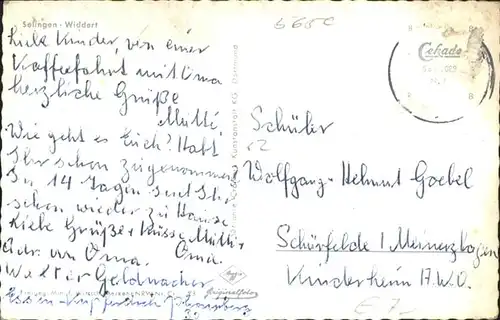 Solingen - Widdert
Liebe Kinder, von einer
Kaffeefahrt mit Oma
herzliche Grüße
Mutti.
Wie geht es Euch? Habt
Ihr schon zugenommen?
In 14 Tagen seid Ihr
schon wieder zu Hause
Liebe Grüße + Küsse Mutti +
Oma.
Adr. von Oma.
Walter Geldmacher
Essen-
565C
Cekade
B
B
Schüler
Wolfgang-Helmut Goebel
Schürfelde / Meinerzhagen
Kinderheim A.W.O.
Kunstanstalt KG Dortmund
Agfa
Originalfoto
£ 7-